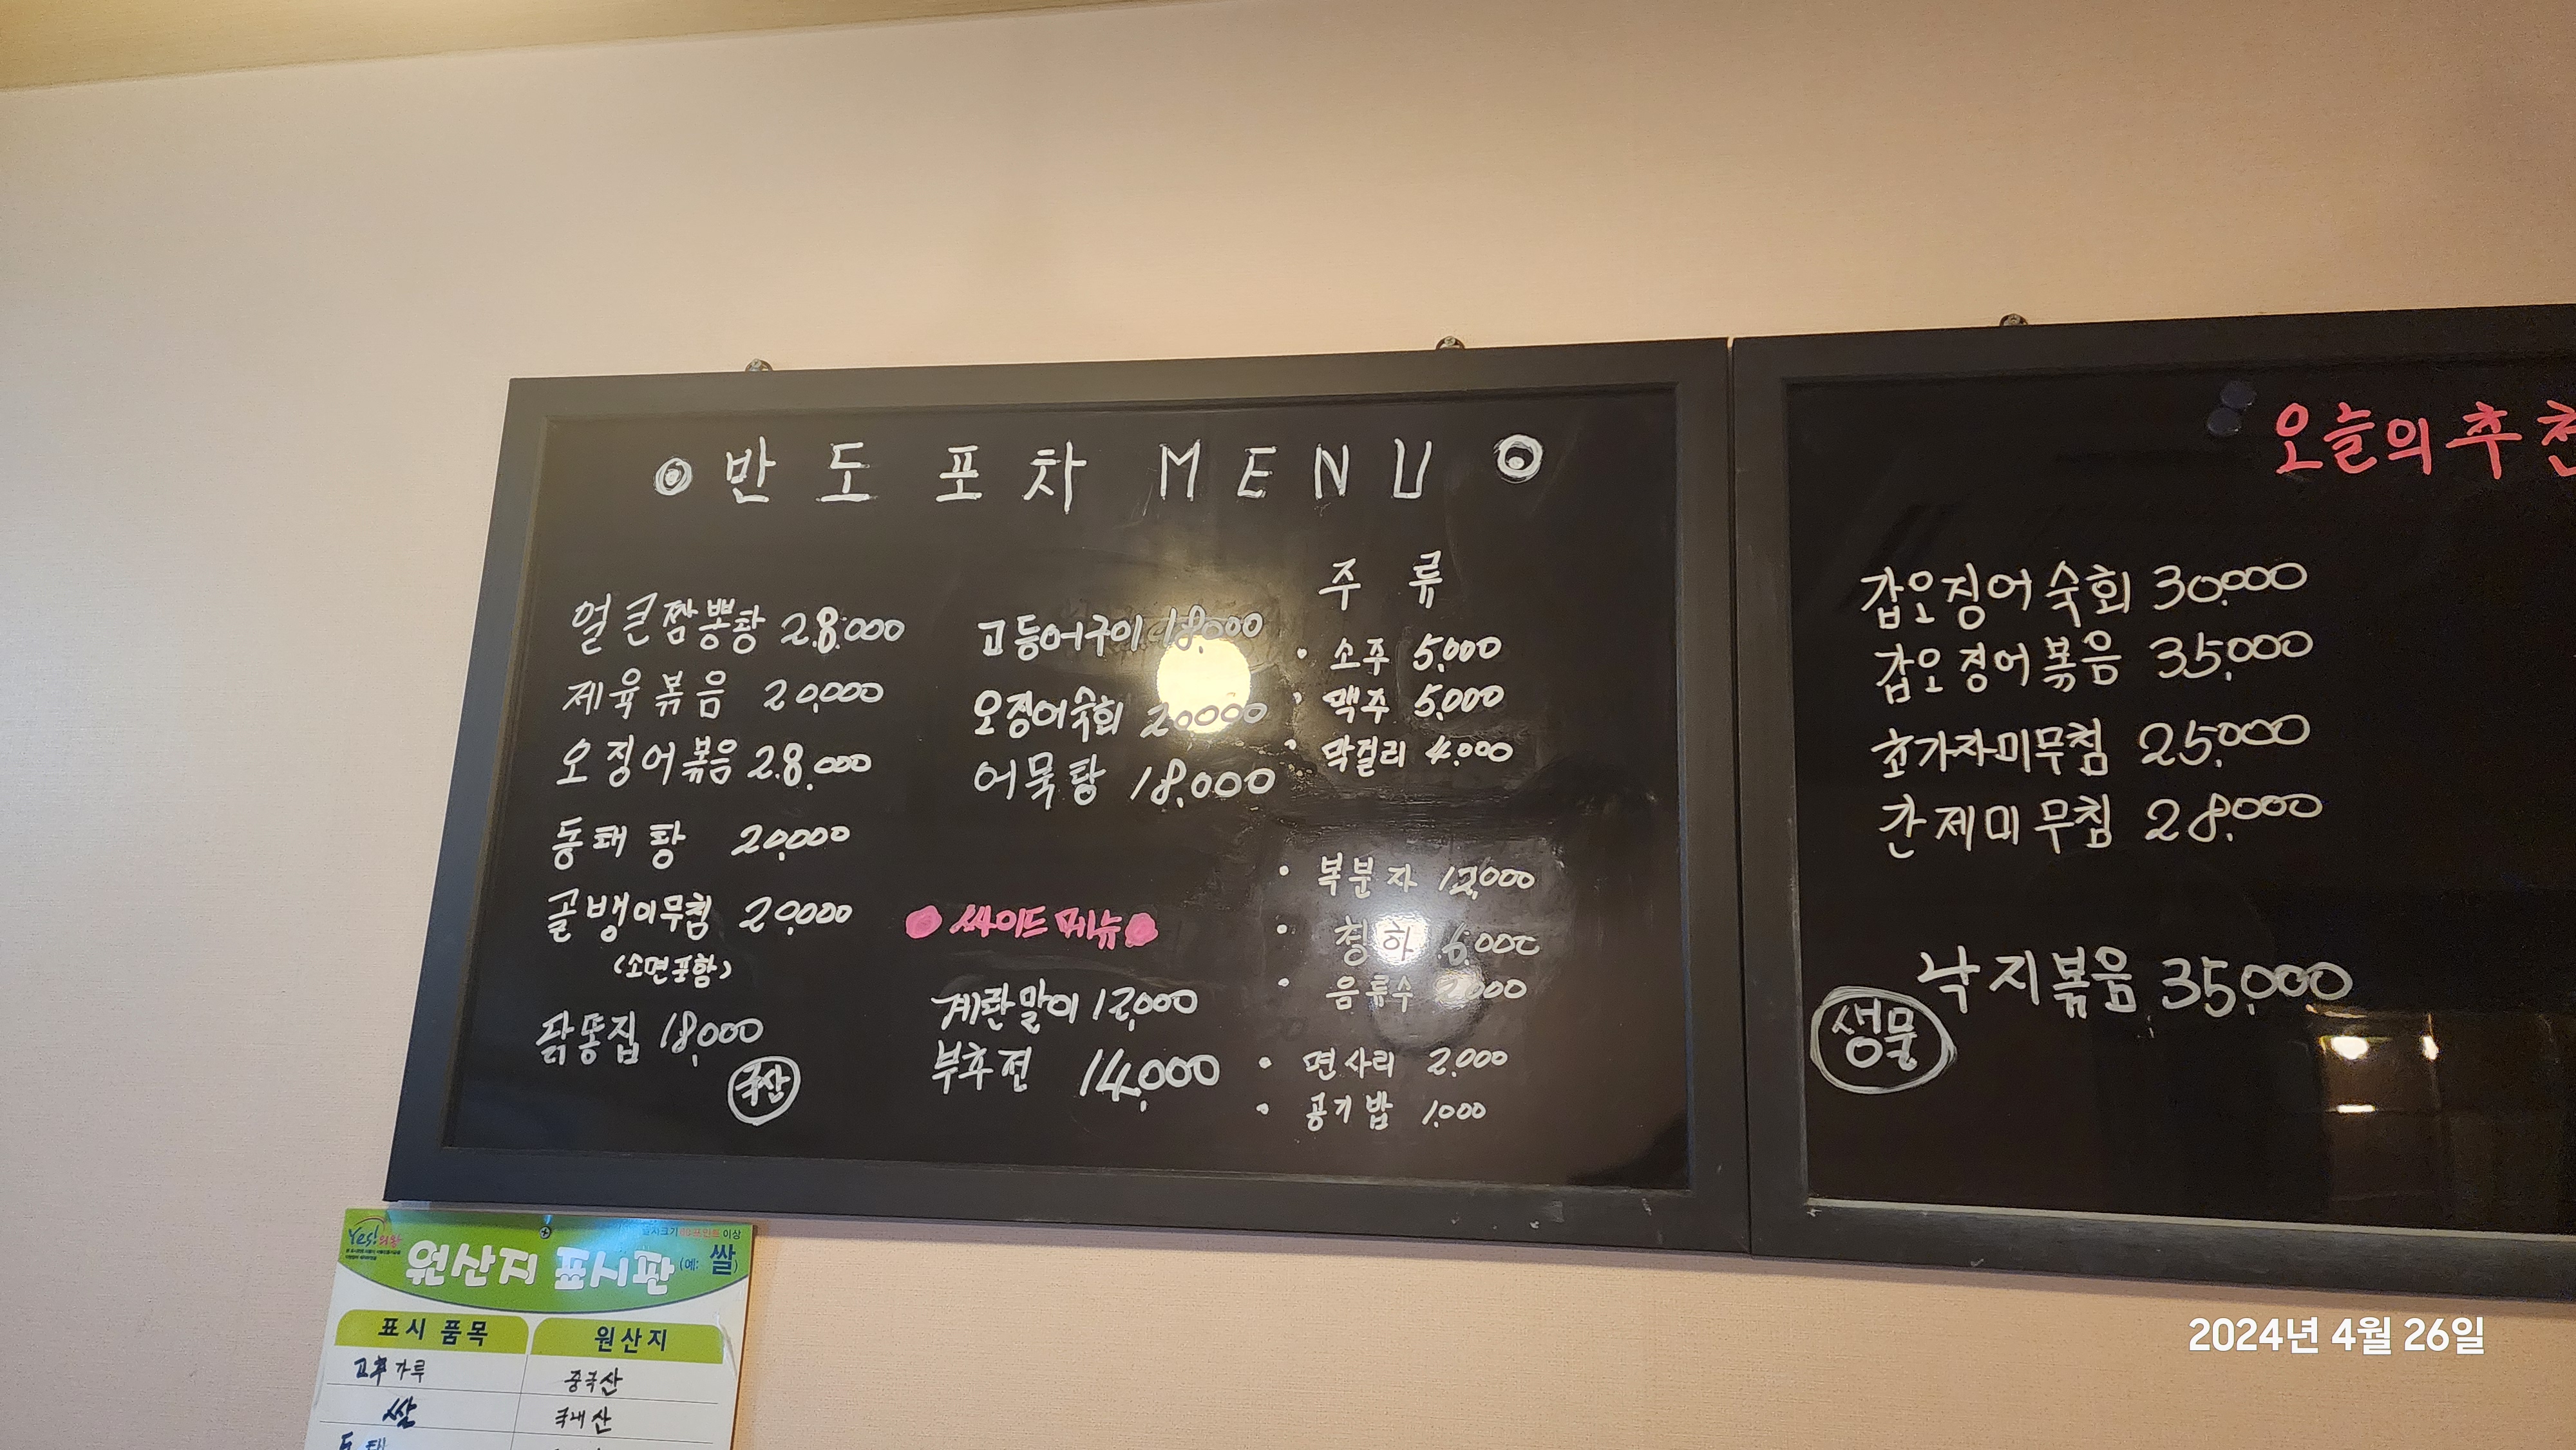 반도포차 MENU
얼큰짬뽕탕 28.000
제육볶음 20,000
오징어볶음 28,000
동태탕 20,000
골뱅이무침 20,000
(소면포함)
닭똥집 18,000
국산
고등어구이 18,000
오징어숙회 20000
어묵탕 18,000
싸이드 메뉴
계란말이 12,000
부추전 14,000
주 류
• 소주 5,000
• 맥주 5,000
• 막걸리 4,000
• 복분자 12,000
• 청하 6,000
• 음류수 2000
• 면사리 2,000
• 공기밥 1,000
오늘의 추천
갑오징어숙회 30,000
갑오징어볶음 35,000
초가자미무침 25,000
간제미무침 28,000
낙지볶음 35,000
생물
Yes! 의왕
이상
원산지 표시판 (예: 쌀)
표시 품목 원산지
고추가루 중국산
쌀 국내산
동태
2024년 4월 26일